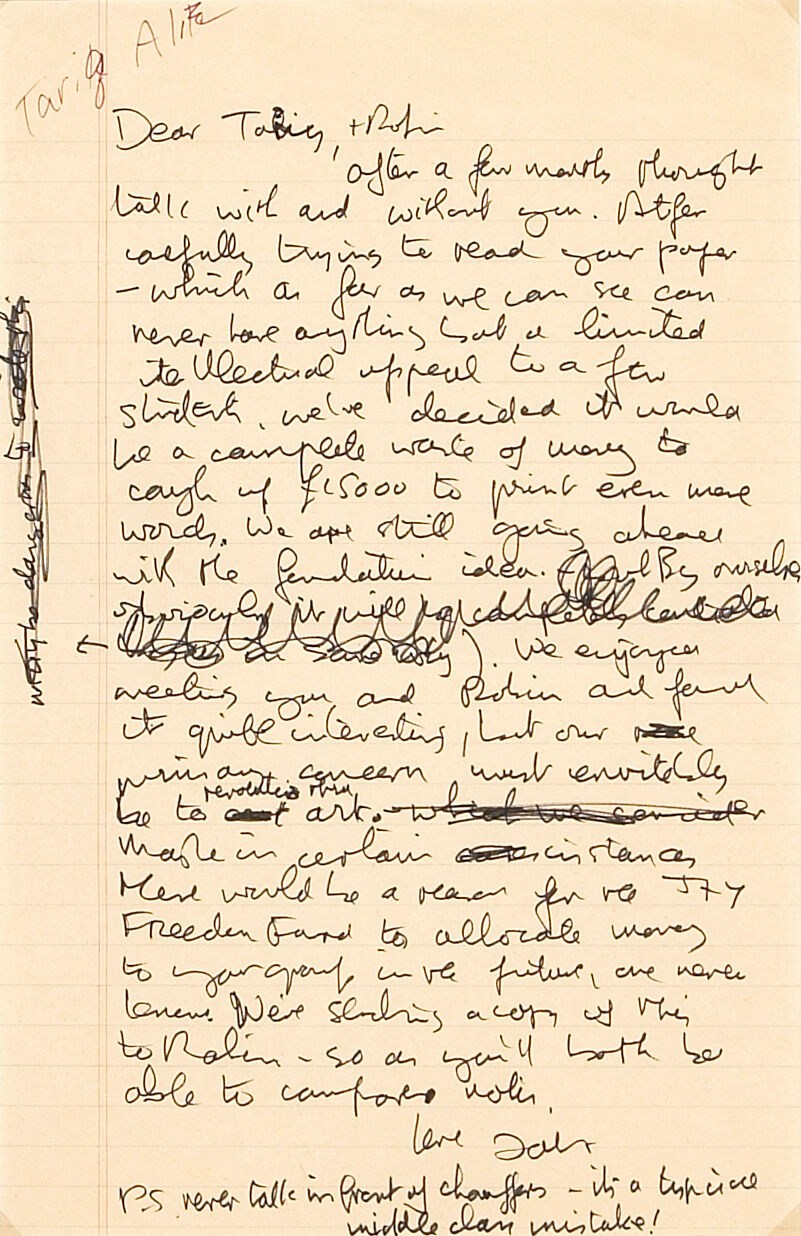 Tariq Ali
Dear Tariq, + Robin
after a few months thought
talk with and without you. Atfer
caefully trying to read your paper
– which as far as we can see can
never have anything but a limited
itellectual appeal to a few
students, we've decided it would
be a complete waste of money to
cough up £15000 to print even more
words. We are still going ahead
with the foundation idea. By ourselves
obviously it will
). We enjoyed
meeting you and Robin and found
it quite interesting, but our
primary concern must envitebly
be to revolution thru art. – what we consider
Maybe in certain cinstances
there would be a reason for the J + Y
Freedom Fund to allocate money
to your group in the future, one never
knows. We're sending a copy of this
to Robin – so as you'll both be
able to compare notes.
love John
P.S. never talk in front of chauffers – its a typicle
middle class mistake!
maybe dangerous to